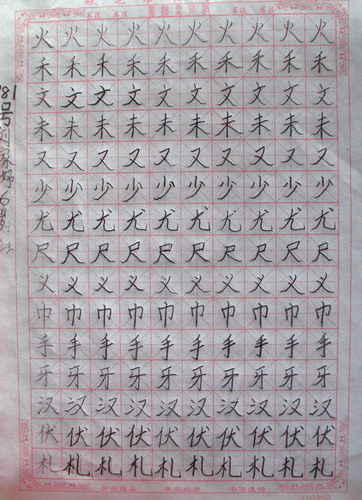 火火火火火火火火火火
禾禾禾禾禾禾禾禾禾禾
文文文文文文文文文文
未未未未未未未未未未
又又又又又又又又又又
少少少少少少少少少少
尤尤尤尤尤尤尤尤尤尤
尺尺尺尺尺尺尺尺尺尺
义义义义义义义义义义
巾巾巾巾巾巾巾巾巾巾
手手手手手手手手手手
牙牙牙牙牙牙牙牙牙牙
汉汉汉汉汉汉汉汉汉汉
伏伏伏伏伏伏伏伏伏伏
札札札札札札札札札札
81号